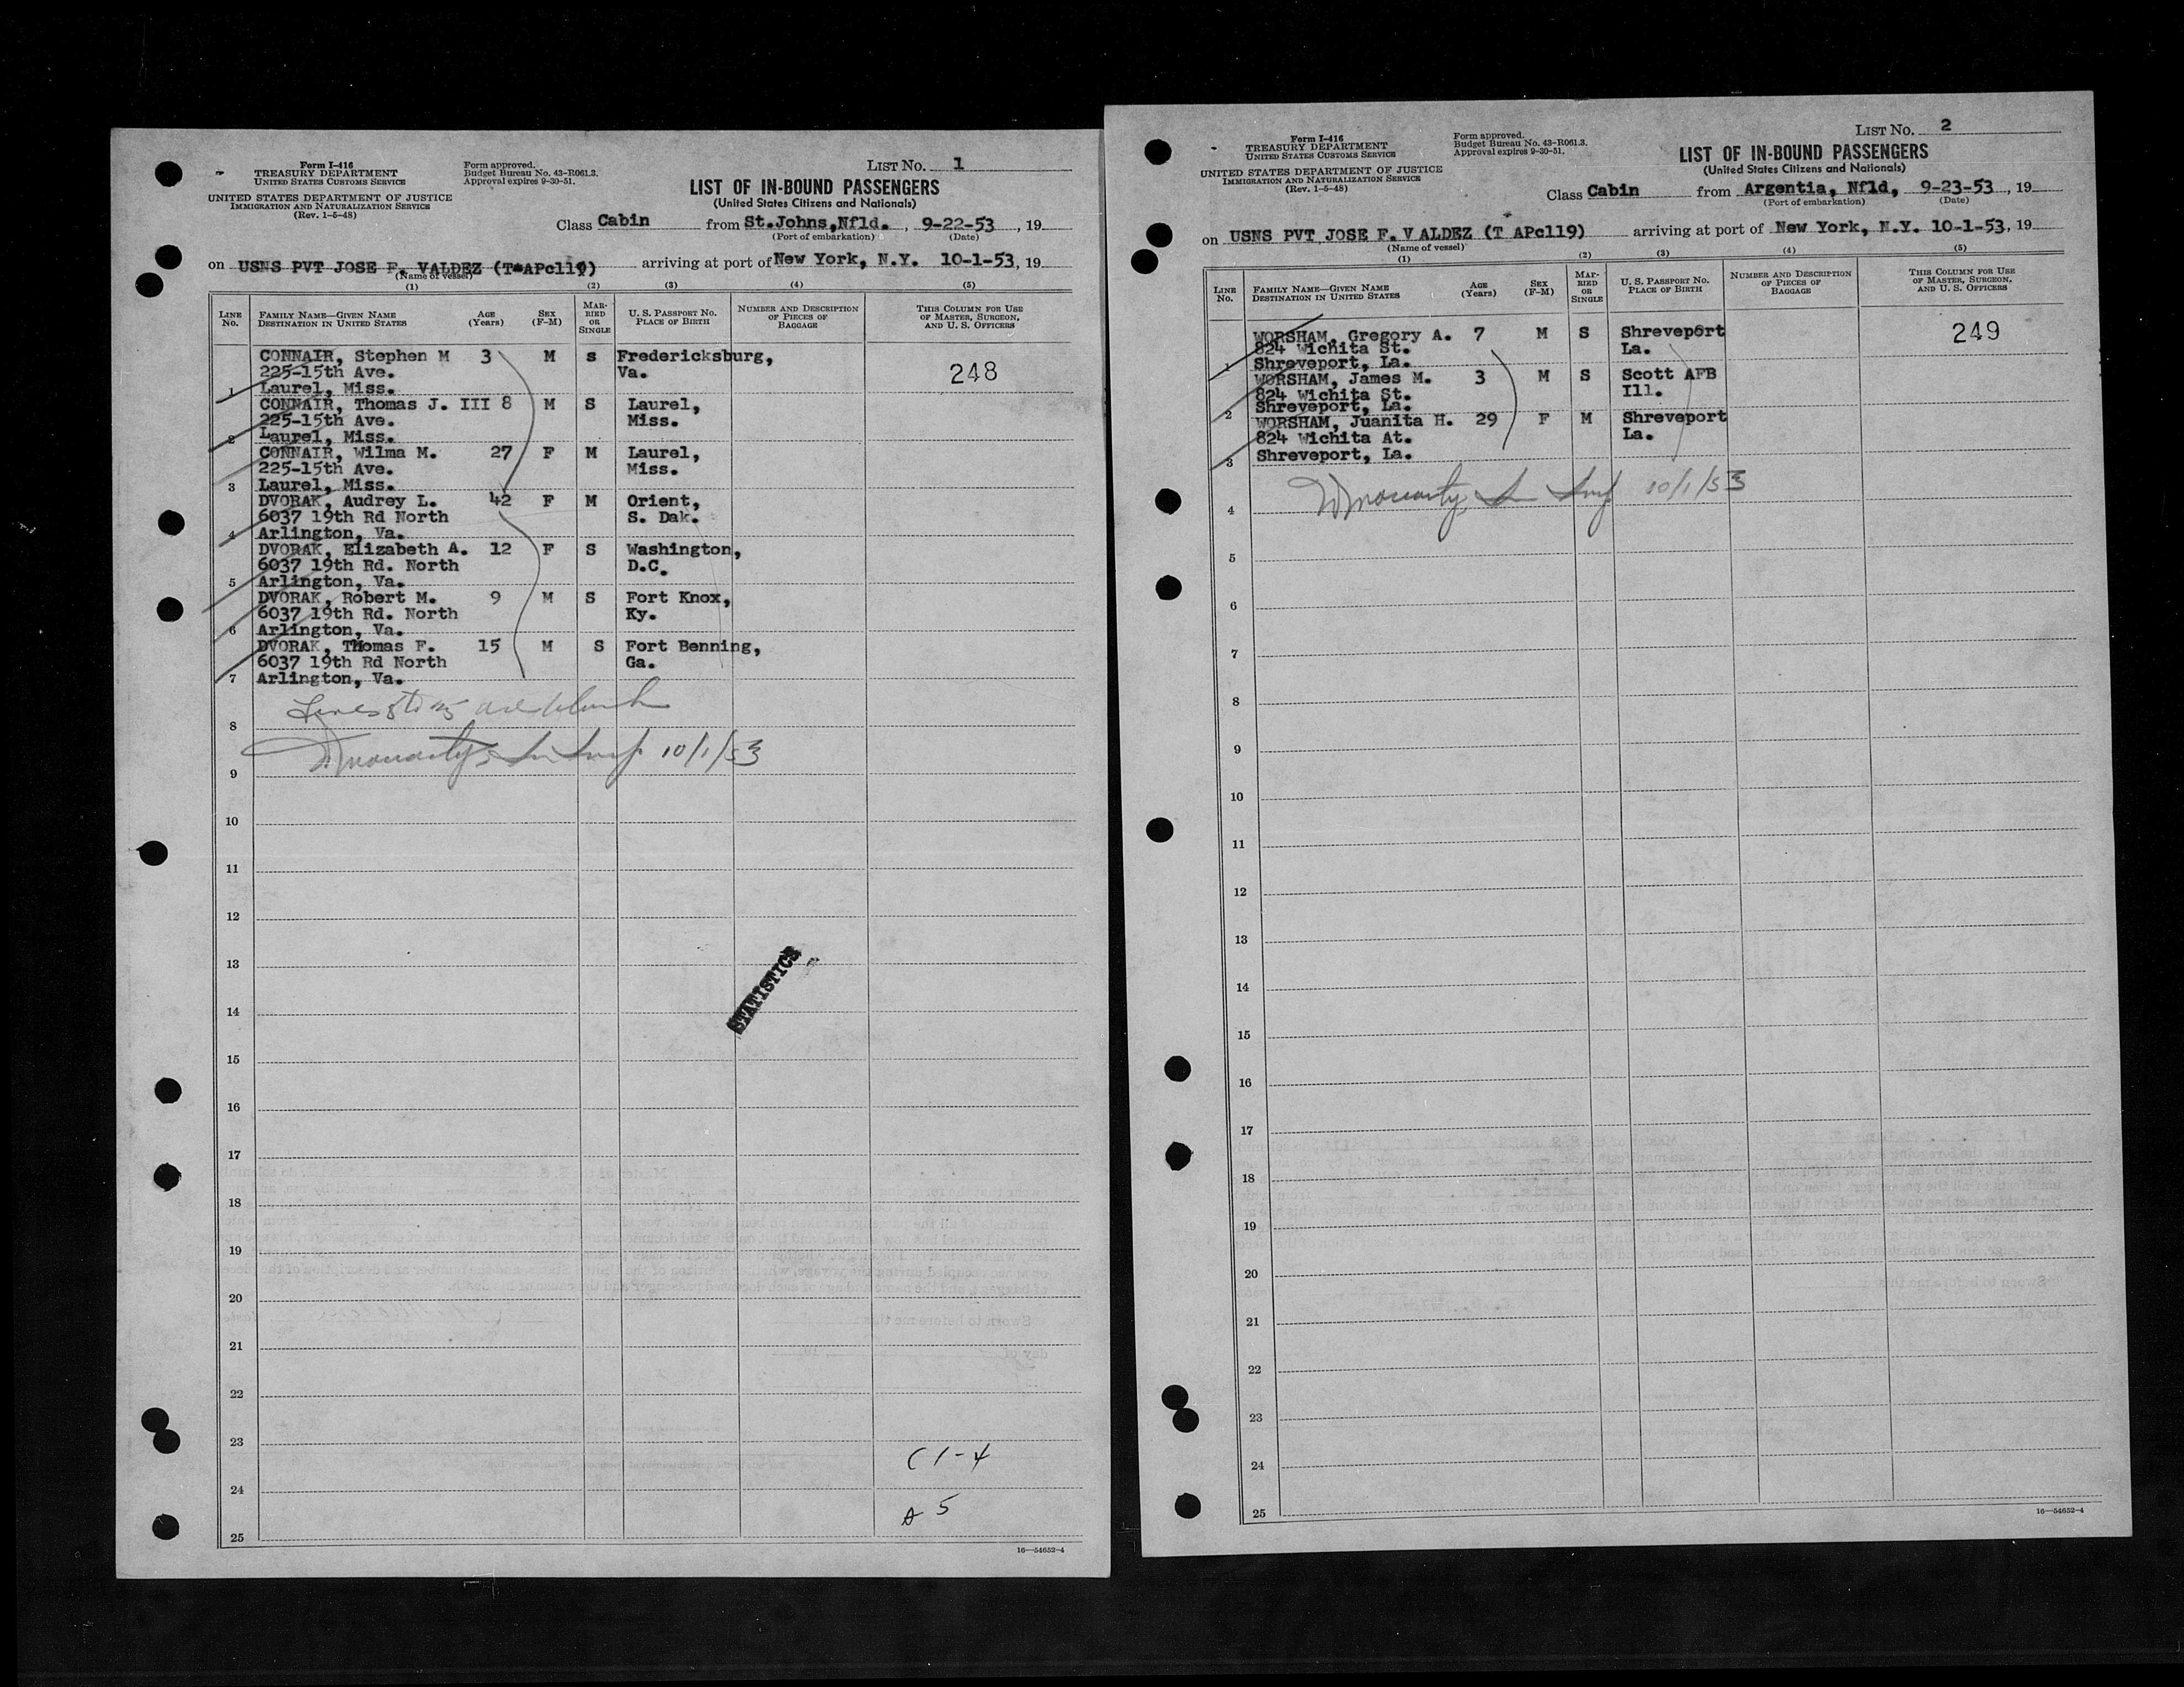 Form I-416
TREASURY DEPARTMENT
UNITED STATES CUSTOMS SERVICE
UNITED STATES DEPARTMENT OF JUSTICE
IMMIGRATION AND NATURALIZATION SERVICE
(Rev. 1-5-48)
Form approved.
Budget Bureau No. 43-R061.3.
Approval expires 9-30-51.
LIST No. 1
LIST OF IN-BOUND PASSENGERS
(United States Citizens and Nationals)
Class Cabin from St.Johns,Nfld. , 9-22-53 , 19
(Port of embarkation) (Date)
on USNS PVT JOSE F. VALDEZ (T*APc119) arriving at port of New York, N.Y. 10-1-53, 19
(Name of vessel)
(1) (2) (3) (4) (5)
LINE No. FAMILY NAME—GIVEN NAME DESTINATION IN UNITED STATES AGE (Years) SEX (F-M) MARRIED OR SINGLE U. S. PASSPORT No. PLACE OF BIRTH NUMBER AND DESCRIPTION OF PIECES OF BAGGAGE THIS COLUMN FOR USE OF MASTER, SURGEON, AND U. S. OFFICERS
CONNAIR, Stephen M 3 M s Fredericksburg,
225-15th Ave. Va. 248
1 Laurel, Miss.
CONNAIR, Thomas J. III 8 M S Laurel,
225-15th Ave. Miss.
2 Laurel, Miss.
CONNAIR, Wilma M. 27 F M Laurel,
225-15th Ave. Miss.
3 Laurel, Miss.
DVORAK, Audrey L. 42 F M Orient,
6037 19th Rd North S. Dak.
4 Arlington, Va.
DVORAK, Elizabeth A. 12 F S Washington,
6037 19th Rd. North D.C.
5 Arlington, Va.
DVORAK, Robert M. 9 M S Fort Knox,
6037 19th Rd. North Ky.
6 Arlington, Va.
DVORAK, Thomas F. 15 M S Fort Benning,
6037 19th Rd North Ga.
7 Arlington, Va.
Lines 8 to 25 are blank
8
10/1/53
9
10
11
12
13
STATISTICS
14
15
16
17
18
19
20
21
22
23
C 1-4
24
A 5
25
16—54652-4
Form I-416
TREASURY DEPARTMENT
UNITED STATES CUSTOMS SERVICE
UNITED STATES DEPARTMENT OF JUSTICE
IMMIGRATION AND NATURALIZATION SERVICE
(Rev. 1-5-48)
Form approved.
Budget Bureau No. 43-R061.3.
Approval expires 9-30-51.
LIST No. 2
LIST OF IN-BOUND PASSENGERS
(United States Citizens and Nationals)
Class Cabin from Argentia, Nfld, 9-23-53 , 19
(Port of embarkation) (Date)
on USNS PVT JOSE F. V ALDEZ (T APc119) arriving at port of New York, N.Y. 10-1-53, 19
(Name of vessel)
(1) (2) (3) (4) (5)
LINE No. FAMILY NAME—GIVEN NAME DESTINATION IN UNITED STATES AGE (Years) SEX (F-M) MARRIED OR SINGLE U. S. PASSPORT No. PLACE OF BIRTH NUMBER AND DESCRIPTION OF PIECES OF BAGGAGE THIS COLUMN FOR USE OF MASTER, SURGEON, AND U. S. OFFICERS
WORSHAM, Gregory A. 7 M S Shreveport 249
824 Wichita St. La.
1 Shreveport, La.
WORSHAM, James M. 3 M S Scott AFB
824 Wichita St. Ill.
2 Shreveport, La.
WORSHAM, Juanita H. 29 F M Shreveport
824 Wichita At. La.
3 Shreveport, La.
10/1/53
4
5
6
7
8
9
10
11
12
13
14
15
16
17
18
19
20
21
22
23
24
25
16—54652-4